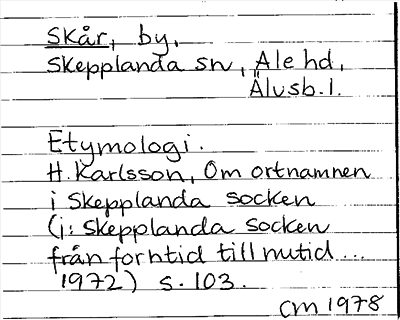 Skår, by,
Skepplanda sn, Ale hd,
Älvsb. l.
Etymologi.
H. Karlsson, Om ortnamnen
i Skepplanda socken
(i: Skepplanda socken
från forntid till nutid...
1972) s. 103.
CM 1978